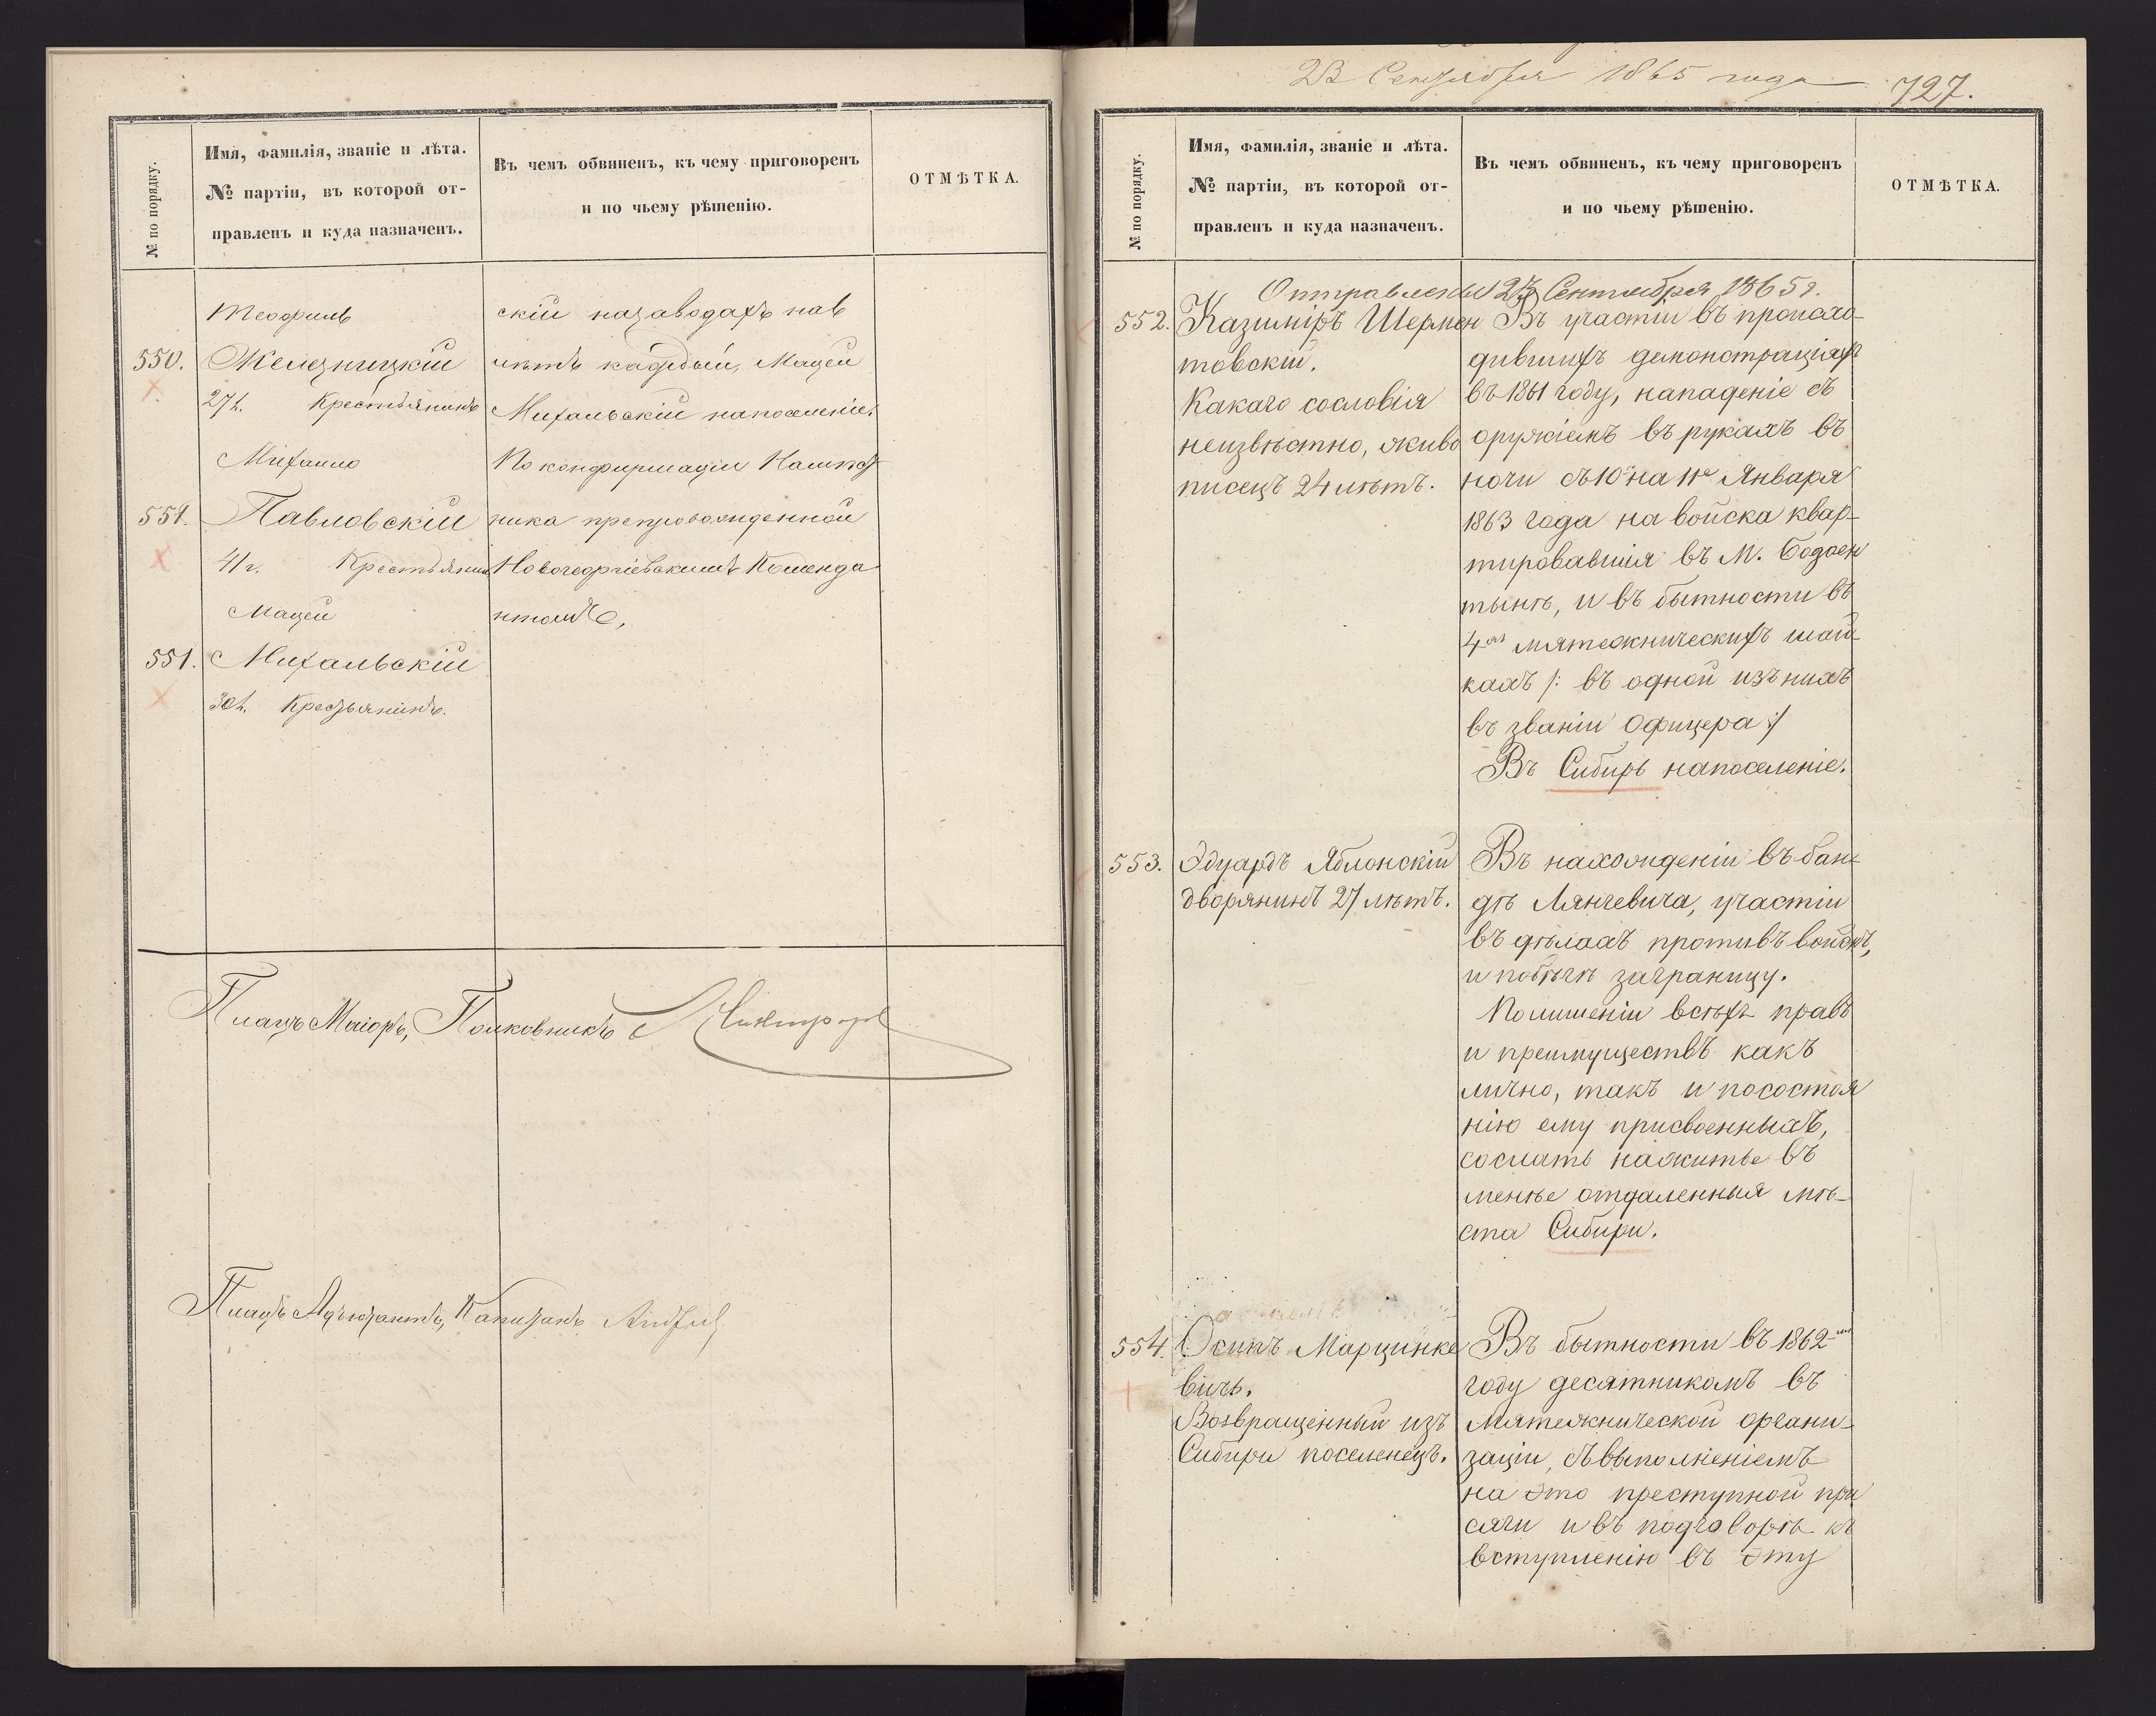 № по порядку.
Имя, фамилія, званіе и лѣта.
№ партіи, въ которой от-
правленъ и куда назначенъ.
Въ чемъ обвиненъ, къ чему приговоренъ
и по чьему рѣшенію.
ОТМѢТКА.
Теофиль
550. Железницкій
27 л. Крестьянинъ
Михаило
551. Павловскій
41 г. Крестьянинъ
Мацей
551. Михальскій
30 л. Крестьянинъ.
скій на заводахъ на 8
лѣтъ каждый, Мацей
Михальскій на поселеніе.
По конфирмаціи
ника препровожденной
Новогеоргіевскимъ Коменда
нтомъ,
Плацъ Маіоръ, Полковникъ
Плацъ Адъютантъ, Капитанъ
23 Сентября 1865 года
727.
№ по порядку.
Имя, фамилія, званіе и лѣта.
№ партіи, въ которой от-
правленъ и куда назначенъ.
Въ чемъ обвиненъ, къ чему приговоренъ
и по чьему рѣшенію.
ОТМѢТКА.
Отправлены 23 Сентября 1865 г.
552. Казиміръ Шермен
товскій.
Какаго сословія
неизвѣстно, живо
писецъ 24 лѣтъ.
Въ участіи въ происхо-
дившихъ демонстраціяхъ
въ 1861 году, нападеніе съ
оружіемъ въ рукахъ въ
ночи съ 10 на 11е Января
1863 года на войска квар-
тировавшія въ М. Бодзен
тынѣ, и въ бытности въ
4ехъ мятежническихъ шай
кахъ /: въ одной изъ нихъ
въ званіи Офицера :/
Въ Сибирь на поселеніе.
553. Эдуардъ Яблонскій
дворянинъ 27 лѣтъ.
Въ нахожденіи въ бан-
дѣ Лянгевича, участіи
въ дѣлахъ противъ войскъ,
и побѣгѣ заграницу.
По лишеніи всѣхъ правъ
и преимуществъ какъ
лично, такъ и по состоя
нію ему присвоенныхъ,
сослать на житье въ
менѣе отдаленныя мѣ-
ста Сибири.
554. Осипъ Марцинке
вичъ.
Возвращенный изъ
Сибири поселенецъ.
Въ бытности въ 1862-мъ
году десятникомъ въ
мятежнической органи-
заціи, съ выполненіемъ
на это преступной при
сяги и въ подговорѣ къ
вступленію въ эту